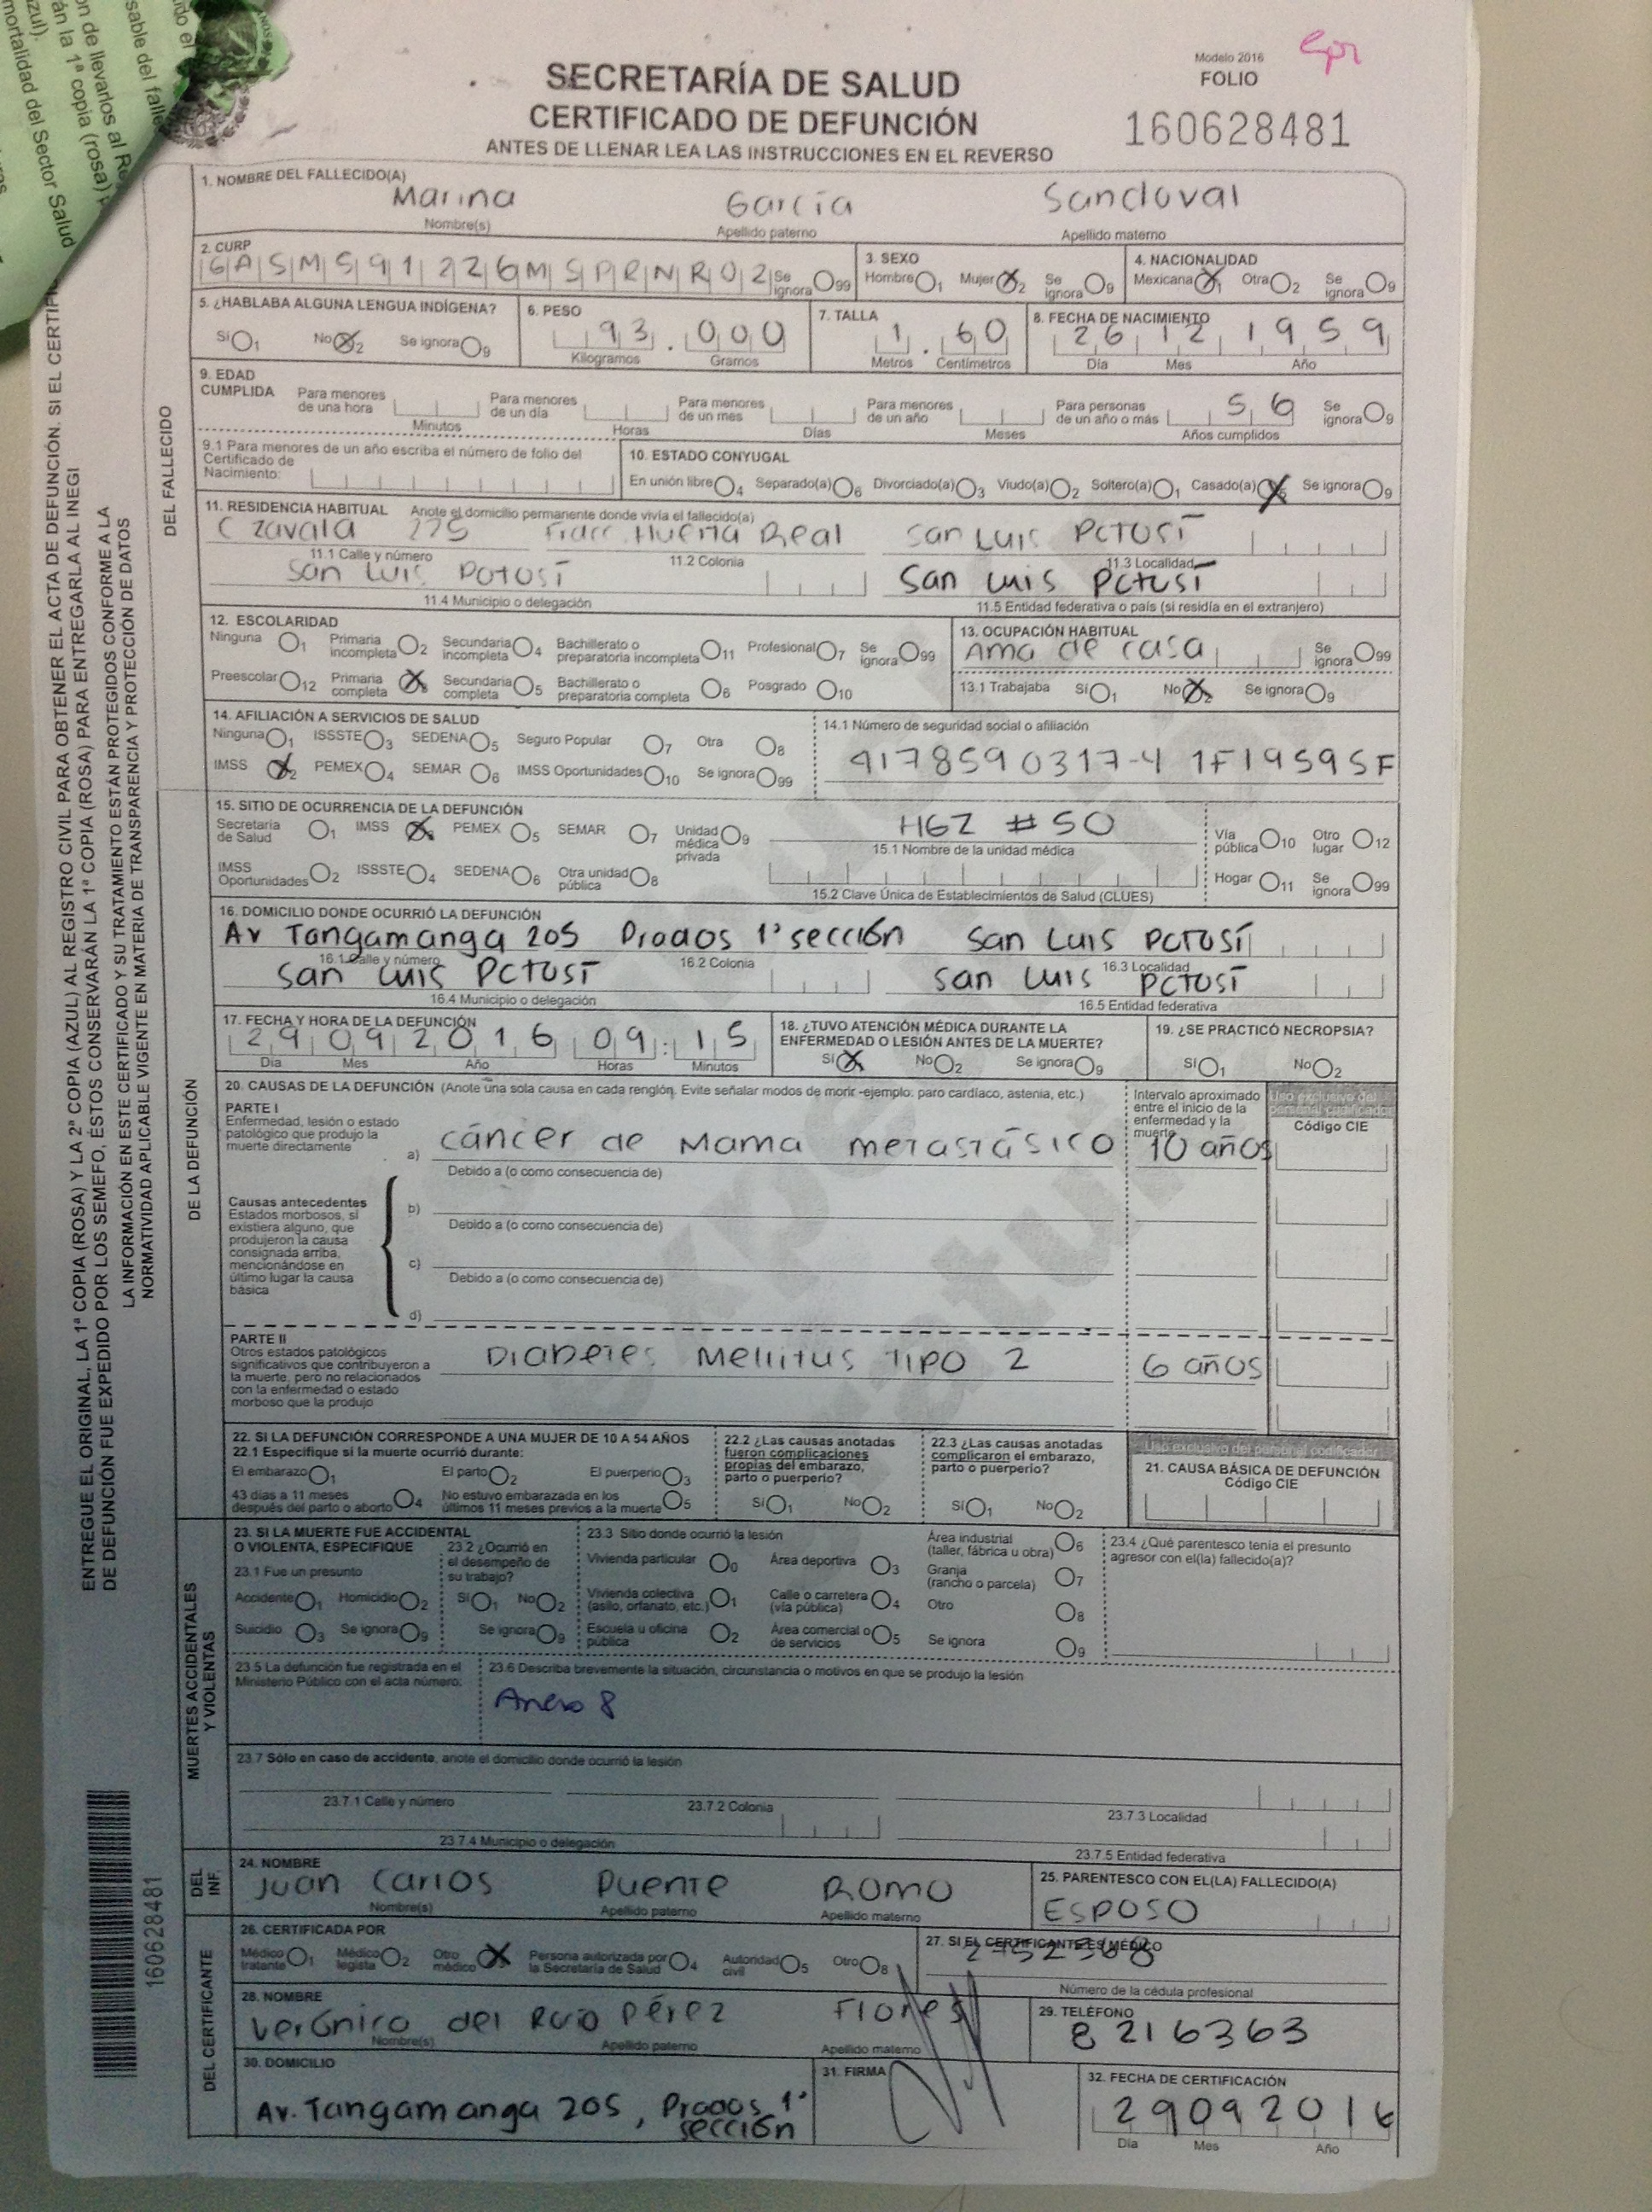 Modelo 2016
SECRETARÍA DE SALUD
FOLIO
CERTIFICADO DE DEFUNCIÓN
160628481
ANTES DE LLENAR LEA LAS INSTRUCCIONES EN EL REVERSO
1. NOMBRE DEL FALLECIDO(A)
Marina García Sandoval
Nombre(s) Apellido paterno Apellido materno
2. CURP 3. SEXO 4. NACIONALIDAD
GASMS91226MSPRNR02 Se ignora 99 Hombre 1 Mujer 2 Se ignora 9 Mexicana 1 Otra 2 Se ignora 9
5. ¿HABLABA ALGUNA LENGUA INDÍGENA? 6. PESO 7. TALLA 8. FECHA DE NACIMIENTO
Sí 1 No 2 Se ignora 9 93.000 1.60 26 12 1959
Kilogramos Gramos Metros Centímetros Día Mes Año
9. EDAD CUMPLIDA Para menores de una hora Para menores de un día Para menores de un mes Para menores de un año Para personas de un año o más 56 Se ignora 9
Minutos Horas Días Meses Años cumplidos
9.1 Para menores de un año escriba el número de folio del Certificado de Nacimiento:
10. ESTADO CONYUGAL
En unión libre 4 Separado(a) 6 Divorciado(a) 3 Viudo(a) 2 Soltero(a) 1 Casado(a) 5 Se ignora 9
11. RESIDENCIA HABITUAL Anote el domicilio permanente donde vivía el fallecido(a)
C Zavala 275 Fracc. Huerta Real San Luis Potosí
11.1 Calle y número 11.2 Colonia 11.3 Localidad
San Luis Potosí San Luis Potosí
11.4 Municipio o delegación 11.5 Entidad federativa o país (si residía en el extranjero)
12. ESCOLARIDAD 13. OCUPACIÓN HABITUAL
Ninguna 1 Primaria incompleta 2 Secundaria incompleta 4 Bachillerato o preparatoria incompleta 11 Profesional 7 Se ignora 99 Ama de casa Se ignora 99
Preescolar 12 Primaria completa 3 Secundaria completa 5 Bachillerato o preparatoria completa 6 Posgrado 10 13.1 Trabajaba Sí 1 No 2 Se ignora 9
14. AFILIACIÓN A SERVICIOS DE SALUD 14.1 Número de seguridad social o afiliación
Ninguna 1 ISSSTE 3 SEDENA 5 Seguro Popular 7 Otra 8
IMSS 2 PEMEX 4 SEMAR 6 IMSS Oportunidades 10 Se ignora 99 4178590317-4 1F1959SF
15. SITIO DE OCURRENCIA DE LA DEFUNCIÓN
Secretaría de Salud 1 IMSS 3 PEMEX 5 SEMAR 7 Unidad médica privada 9 HGZ #50 Vía pública 10 Otro lugar 12
15.1 Nombre de la unidad médica
IMSS Oportunidades 2 ISSSTE 4 SEDENA 6 Otra unidad pública 8 Hogar 11 Se ignora 99
15.2 Clave Única de Establecimientos de Salud (CLUES)
16. DOMICILIO DONDE OCURRIÓ LA DEFUNCIÓN
Av Tangamanga 205 Prados 1ª sección San Luis Potosí
16.1 Calle y número 16.2 Colonia 16.3 Localidad
San Luis Potosí San Luis Potosí
16.4 Municipio o delegación 16.5 Entidad federativa
17. FECHA Y HORA DE LA DEFUNCIÓN 18. ¿TUVO ATENCIÓN MÉDICA DURANTE LA ENFERMEDAD O LESIÓN ANTES DE LA MUERTE? 19. ¿SE PRACTICÓ NECROPSIA?
29 09 2016 09:15 Sí 1 No 2 Se ignora 9 Sí 1 No 2
Día Mes Año Horas Minutos
20. CAUSAS DE LA DEFUNCIÓN (Anote una sola causa en cada renglón. Evite señalar modos de morir -ejemplo: paro cardíaco, astenia, etc.)
Intervalo aproximado entre el inicio de la enfermedad y la muerte
Uso exclusivo del personal codificador
Código CIE
PARTE I
Enfermedad, lesión o estado patológico que produjo la muerte directamente
a) cáncer de Mama metastásico 10 años
Debido a (o como consecuencia de)
Causas antecedentes
Estados morbosos, si existiera alguno, que produjeron la causa consignada arriba, mencionándose en último lugar la causa básica
b)
Debido a (o como consecuencia de)
c)
Debido a (o como consecuencia de)
d)
PARTE II
Otros estados patológicos significativos que contribuyeron a la muerte, pero no relacionados con la enfermedad o estado morboso que la produjo
Diabetes Mellitus Tipo 2 6 años
22. SI LA DEFUNCIÓN CORRESPONDE A UNA MUJER DE 10 A 54 AÑOS
22.1 Especifique si la muerte ocurrió durante:
El embarazo 1 El parto 2 El puerperio 3
43 días a 11 meses después del parto o aborto 4 No estuvo embarazada en los últimos 11 meses previos a la muerte 5
22.2 ¿Las causas anotadas fueron complicaciones propias del embarazo, parto o puerperio?
Sí 1 No 2
22.3 ¿Las causas anotadas complicaron el embarazo, parto o puerperio?
Sí 1 No 2
Uso exclusivo del personal codificador
21. CAUSA BÁSICA DE DEFUNCIÓN
Código CIE
23. SI LA MUERTE FUE ACCIDENTAL O VIOLENTA, ESPECIFIQUE
23.1 Fue un presunto
Accidente 1 Homicidio 2
Suicidio 3 Se ignora 9
23.2 ¿Ocurrió en el desempeño de su trabajo?
Sí 1 No 2
Se ignora 9
23.3 Sitio donde ocurrió la lesión
Vivienda particular 0 Área deportiva 3 Área industrial (taller, fábrica u obra) 6
Vivienda colectiva (asilo, orfanato, etc.) 1 Calle o carretera (vía pública) 4 Granja (rancho o parcela) 7
Escuela u oficina pública 2 Área comercial o de servicios 5 Otro 8
Se ignora 9
23.4 ¿Qué parentesco tenía el presunto agresor con el(la) fallecido(a)?
23.5 La defunción fue registrada en el Ministerio Público con el acta número:
23.6 Describa brevemente la situación, circunstancia o motivos en que se produjo la lesión
Anexo 8
23.7 Sólo en caso de accidente, anote el domicilio donde ocurrió la lesión
23.7.1 Calle y número 23.7.2 Colonia 23.7.3 Localidad
23.7.4 Municipio o delegación 23.7.5 Entidad federativa
24. NOMBRE 25. PARENTESCO CON EL(LA) FALLECIDO(A)
Juan Carlos Puente Romo ESPOSO
Nombre(s) Apellido paterno Apellido materno
26. CERTIFICADA POR 27. SI EL CERTIFICANTE ES MÉDICO
Médico tratante 1 Médico legista 2 Otro médico 3 Persona autorizada por la Secretaría de Salud 4 Autoridad civil 5 Otro 8
Número de la cédula profesional
28. NOMBRE 29. TELÉFONO
Verónica del Rocío Pérez Flores 8216363
Nombre(s) Apellido paterno Apellido materno
30. DOMICILIO 31. FIRMA 32. FECHA DE CERTIFICACIÓN
Av. Tangamanga 205, Prados 1ª sección 29092016
Día Mes Año
DEL FALLECIDO
DE LA DEFUNCIÓN
MUERTES ACCIDENTALES Y VIOLENTAS
DEL INF.
DEL CERTIFICANTE
ENTREGUE EL ORIGINAL, LA 1ª COPIA (ROSA) Y LA 2ª COPIA (AZUL) AL REGISTRO CIVIL PARA OBTENER EL ACTA DE DEFUNCIÓN. SI EL CERTIFI
DE DEFUNCIÓN FUE EXPEDIDO POR LOS SEMEFO, ÉSTOS CONSERVARÁN LA 1ª COPIA (ROSA) PARA ENTREGARLA AL INEGI
LA INFORMACIÓN EN ESTE CERTIFICADO Y SU TRATAMIENTO ESTÁN PROTEGIDOS CONFORME A LA
NORMATIVIDAD APLICABLE VIGENTE EN MATERIA DE TRANSPARENCIA Y PROTECCIÓN DE DATOS
160628481
sable del falle
de llevarlos al Re
án la 1ª copia (rosa)
azul).
mortalidad del Sector Salud